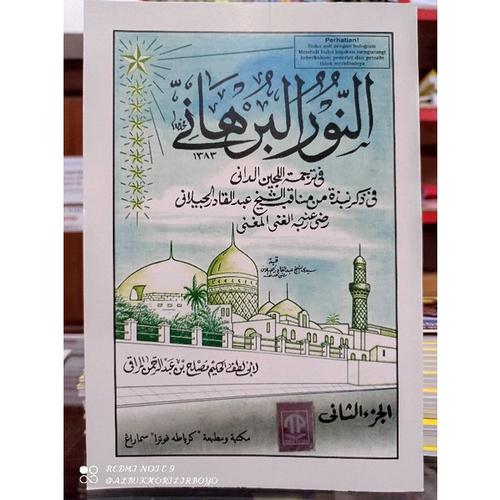 Perhatian!
Buku asli dengan hologram
Membeli buku bajakan mengurangi
keberkahan, penerbit dan penulis
tidak meridhainya
النُّورُ البُرْهَانِيّ
١٣٨٣
فى ترجمة اللجين الدانى
فى ذكر نبذة من مناقب الشيخ عبد القادر الجيلانى
رضى عنه ربه الغنى المغنى
قبة
سيدى الشيخ عبد القادر الجيلانى
لابى لطف الحكيم مصلح بن عبد الرحمن المراقى
الجزء الثانى
مكتبة ومطبعة "كرياطه فوترا" سماراغ
REDMI NOTE 9
@ALBUKHORILIRBOYO